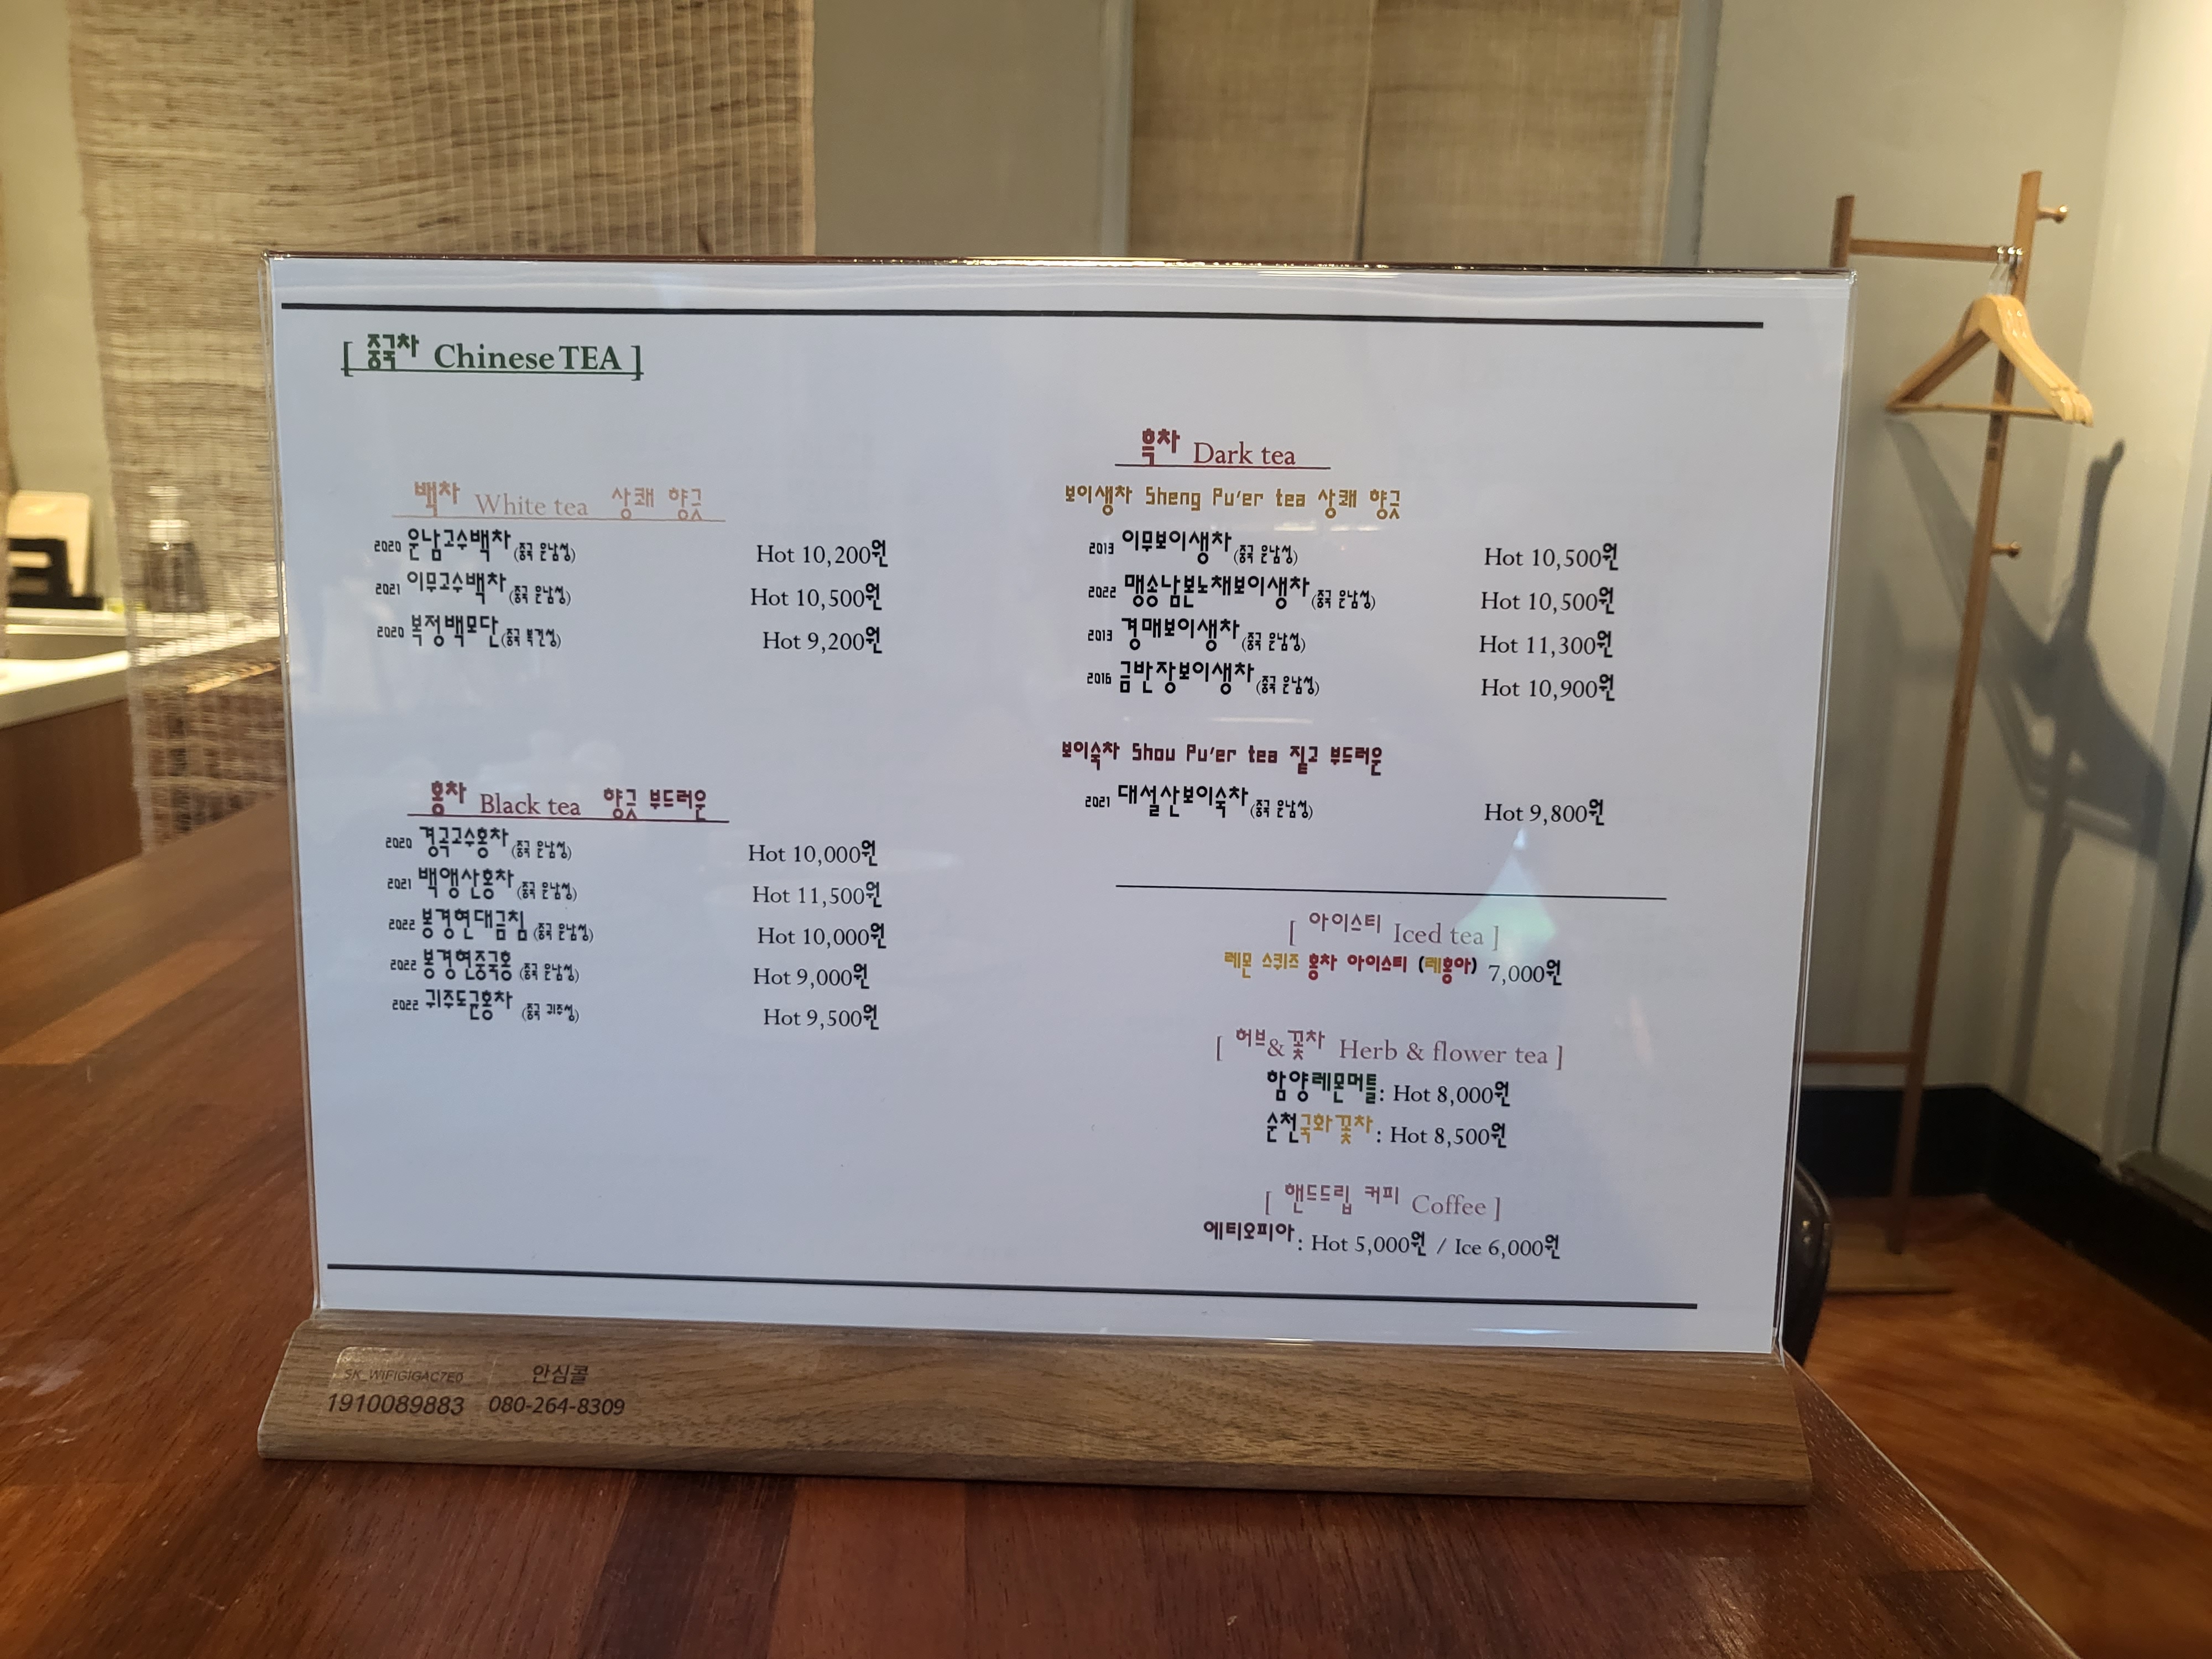 [ 중국차 Chinese TEA ]
백차 White tea 상쾌 향긋
2020 운남고수백차(중국 운남성) Hot 10,200원
2021 이무고수백차(중국 운남성) Hot 10,500원
2020 복정백모단(중국 복건성) Hot 9,200원
홍차 Black tea 향긋 부드러운
2020 경곡고수홍차(중국 운남성) Hot 10,000원
2021 백앵산홍차(중국 운남성) Hot 11,500원
2022 봉경현대금침(중국 운남성) Hot 10,000원
2022 봉경현중국홍(중국 운남성) Hot 9,000원
2022 귀주도균홍차 (중국 귀주성) Hot 9,500원
흑차 Dark tea
보이생차 Sheng Pu'er tea 상쾌 향긋
2013 이무보이생차(중국 운남성) Hot 10,500원
2022 맹송남본노채보이생차(중국 운남성) Hot 10,500원
2013 경매보이생차(중국 운남성) Hot 11,300원
2016 금반장보이생차(중국 운남성) Hot 10,900원
보이숙차 Shou Pu'er tea 짙고 부드러운
2021 대설산보이숙차(중국 운남성) Hot 9,800원
[ 아이스티 Iced tea ]
레몬 스퀴즈 홍차 아이스티 (레홍아) 7,000원
[ 허브&꽃차 Herb & flower tea ]
함양레몬머틀: Hot 8,000원
순천국화꽃차: Hot 8,500원
[ 핸드드립 커피 Coffee ]
에티오피아: Hot 5,000원 / Ice 6,000원
SK_WIFIGIGAC7E0 안심콜
1910089883 080-264-8309